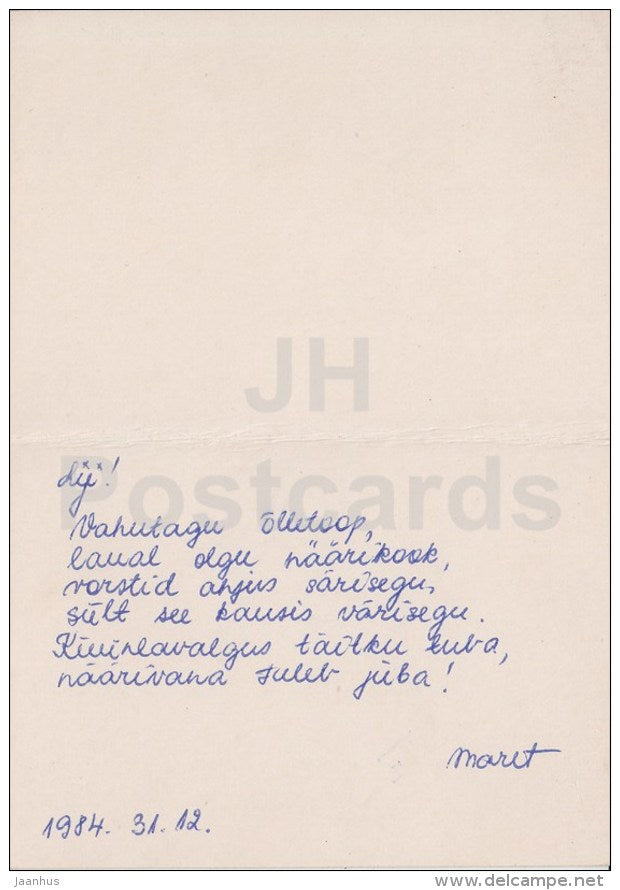 Vahutagu õlletoop,
laual olgu näärikook,
vorstid ahjus särisegu,
sült see kausis värisegu.
Küünlavalgus täitku tuba,
näärivana tuleb juba!
Maret
1984. 31. 12.
JH
Postcards
jaanhus
http://www.delcampe.net